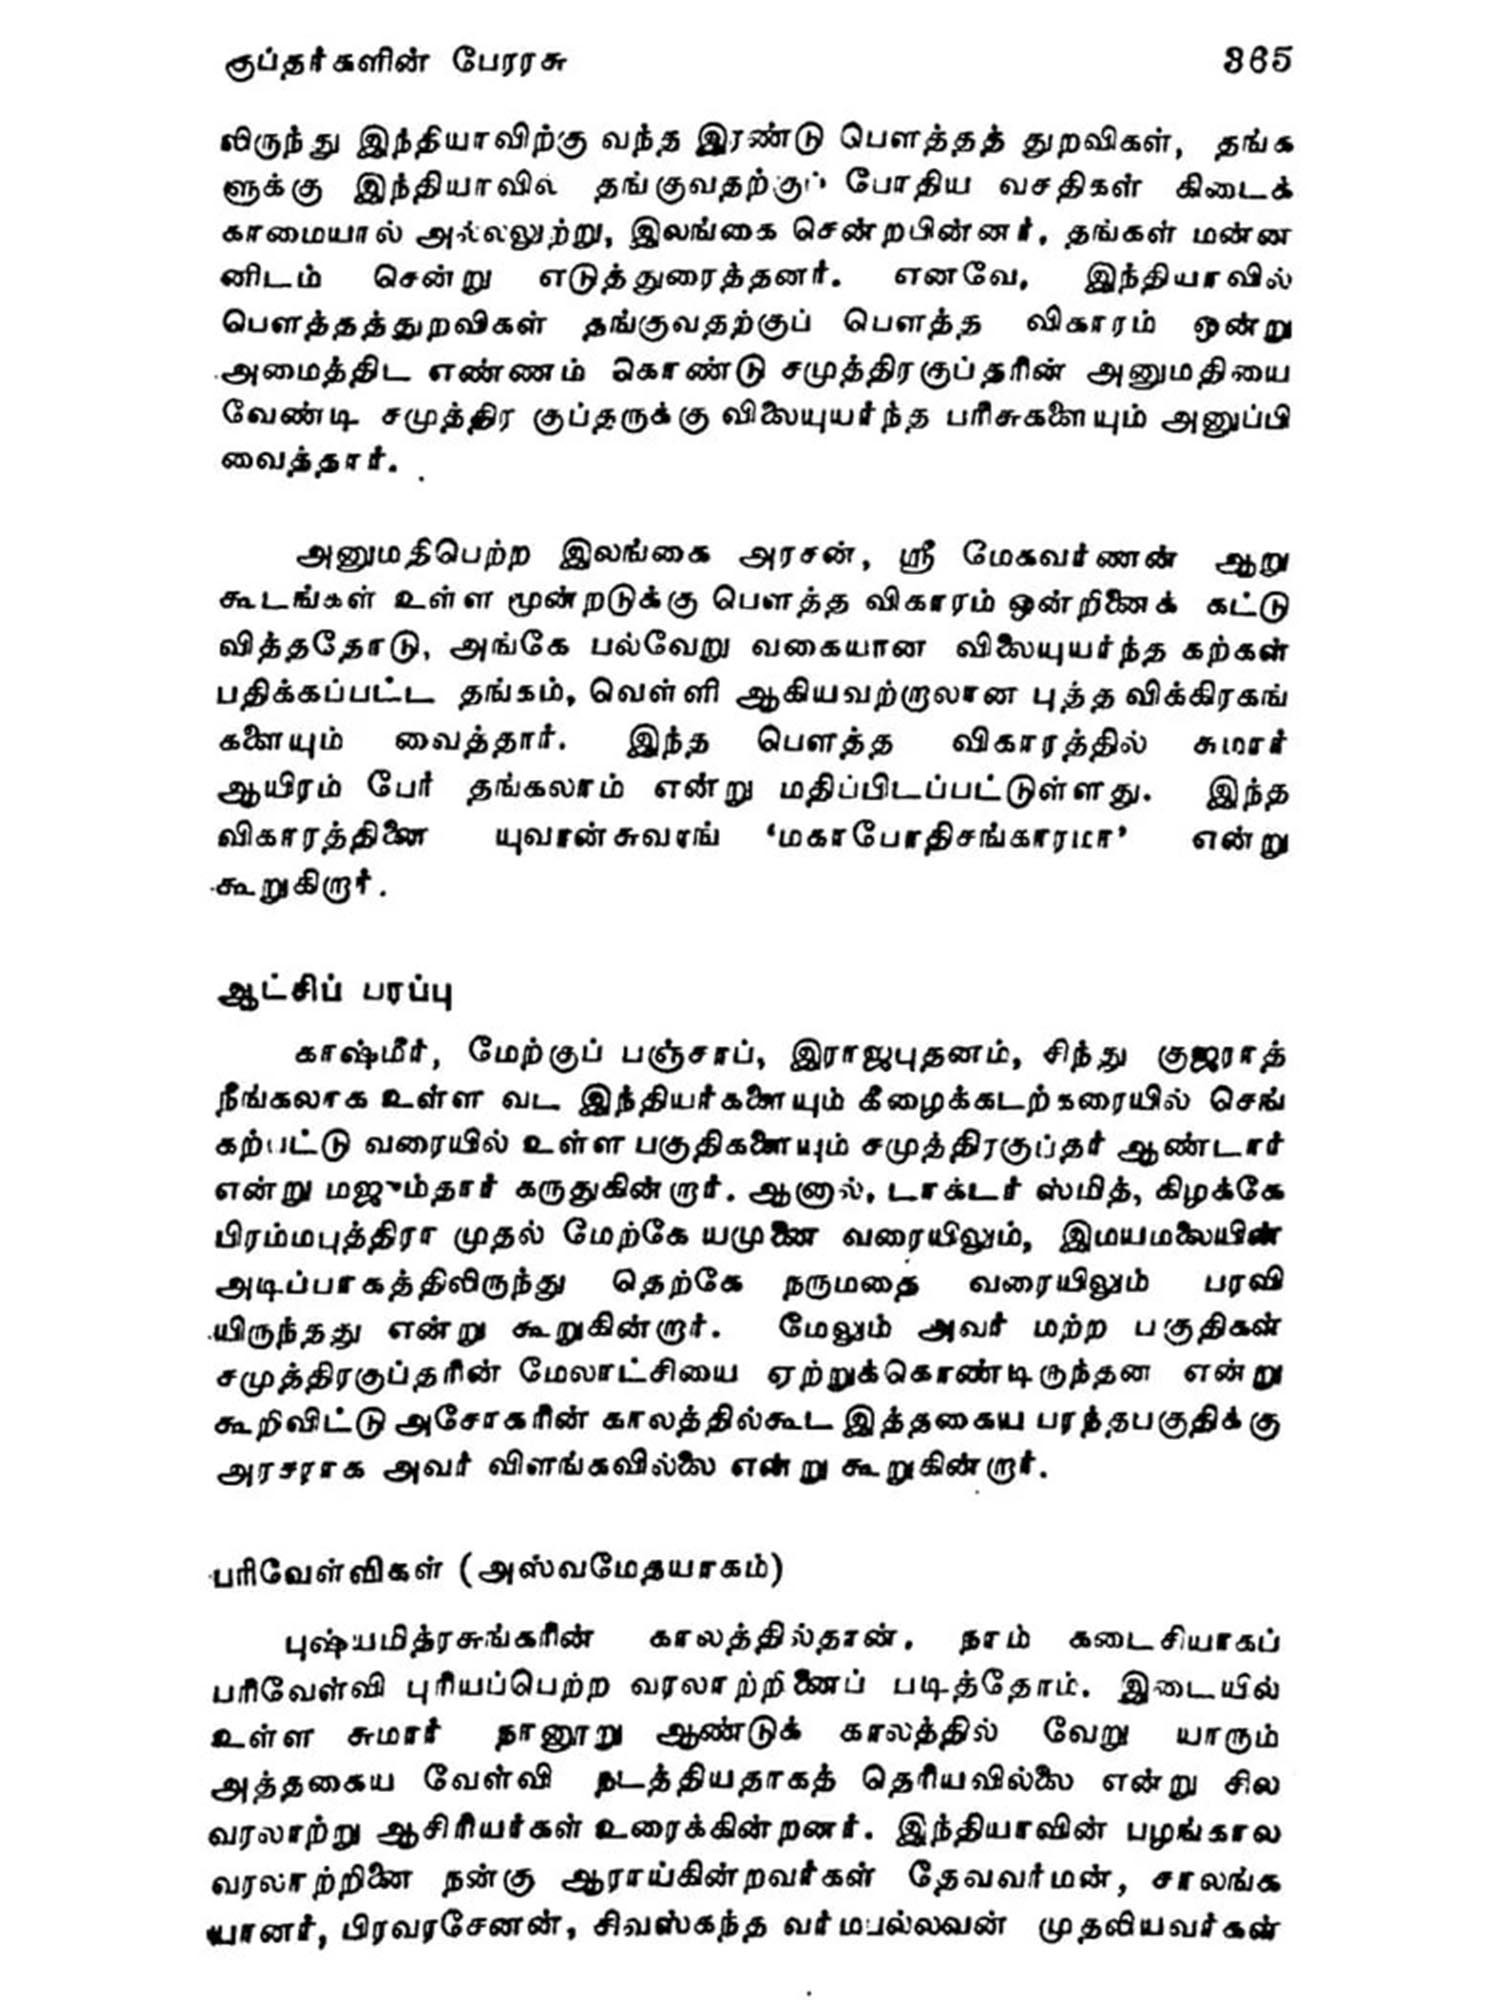 குப்தர்களின் பேரரசு 365
லிருந்து இந்தியாவிற்கு வந்த இரண்டு பௌத்தத் துறவிகள், தங்க
ளுக்கு இந்தியாவில் தங்குவதற்குப் போதிய வசதிகள் கிடைக்
காமையால் அல்லலுற்று, இலங்கை சென்றபின்னர், தங்கள் மன்ன
னிடம் சென்று எடுத்துரைத்தனர். எனவே, இந்தியாவில்
பௌத்தத்துறவிகள் தங்குவதற்குப் பௌத்த விகாரம் ஒன்று
அமைத்திட எண்ணம் கொண்டு சமுத்திரகுப்தரின் அனுமதியை
வேண்டி சமுத்திர குப்தருக்கு விலையுயர்ந்த பரிசுகளையும் அனுப்பி
வைத்தார்.
அனுமதிபெற்ற இலங்கை அரசன், ஸ்ரீ மேகவர்ணன் ஆறு
கூடங்கள் உள்ள மூன்றடுக்கு பௌத்த விகாரம் ஒன்றினைக் கட்டு
வித்ததோடு, அங்கே பல்வேறு வகையான விலையுயர்ந்த கற்கள்
பதிக்கப்பட்ட தங்கம், வெள்ளி ஆகியவற்றாலான புத்த விக்கிரகங்
களையும் வைத்தார். இந்த பௌத்த விகாரத்தில் சுமார்
ஆயிரம் பேர் தங்கலாம் என்று மதிப்பிடப்பட்டுள்ளது. இந்த
விகாரத்தினை யுவான்சுவாங் ‘மகாபோதிசங்காரமா’ என்று
கூறுகிறார்.
ஆட்சிப் பரப்பு
காஷ்மீர், மேற்குப் பஞ்சாப், இராஜபுதனம், சிந்து குஜராத்
நீங்கலாக உள்ள வட இந்தியர்களையும் கீழைக்கடற்கரையில் செங்
கற்பட்டு வரையில் உள்ள பகுதிகளையும் சமுத்திரகுப்தர் ஆண்டார்
என்று மஜும்தார் கருதுகின்றார். ஆனால், டாக்டர் ஸ்மித், கிழக்கே
பிரம்மபுத்திரா முதல் மேற்கே யமுனை வரையிலும், இமயமலையின்
அடிப்பாகத்திலிருந்து தெற்கே நருமதை வரையிலும் பரவி
யிருந்தது என்று கூறுகின்றார். மேலும் அவர் மற்ற பகுதிகள்
சமுத்திரகுப்தரின் மேலாட்சியை ஏற்றுக்கொண்டிருந்தன என்று
கூறிவிட்டு அசோகரின் காலத்தில்கூட இத்தகைய பரந்தபகுதிக்கு
அரசராக அவர் விளங்கவில்லை என்று கூறுகின்றார்.
பரிவேள்விகள் (அஸ்வமேதயாகம்)
புஷ்யமித்ரசுங்கரின் காலத்தில்தான், நாம் கடைசியாகப்
பரிவேள்வி புரியப்பெற்ற வரலாற்றினைப் படித்தோம். இடையில்
உள்ள சுமார் நானூறு ஆண்டுக் காலத்தில் வேறு யாரும்
அத்தகைய வேள்வி நடத்தியதாகத் தெரியவில்லை என்று சில
வரலாற்று ஆசிரியர்கள் உரைக்கின்றனர். இந்தியாவின் பழங்கால
வரலாற்றினை நன்கு ஆராய்கின்றவர்கள் தேவவர்மன், சாலங்க
யானர், பிரவரசேனன், சிவஸ்கந்த வர்மபல்லவன் முதலியவர்கள்